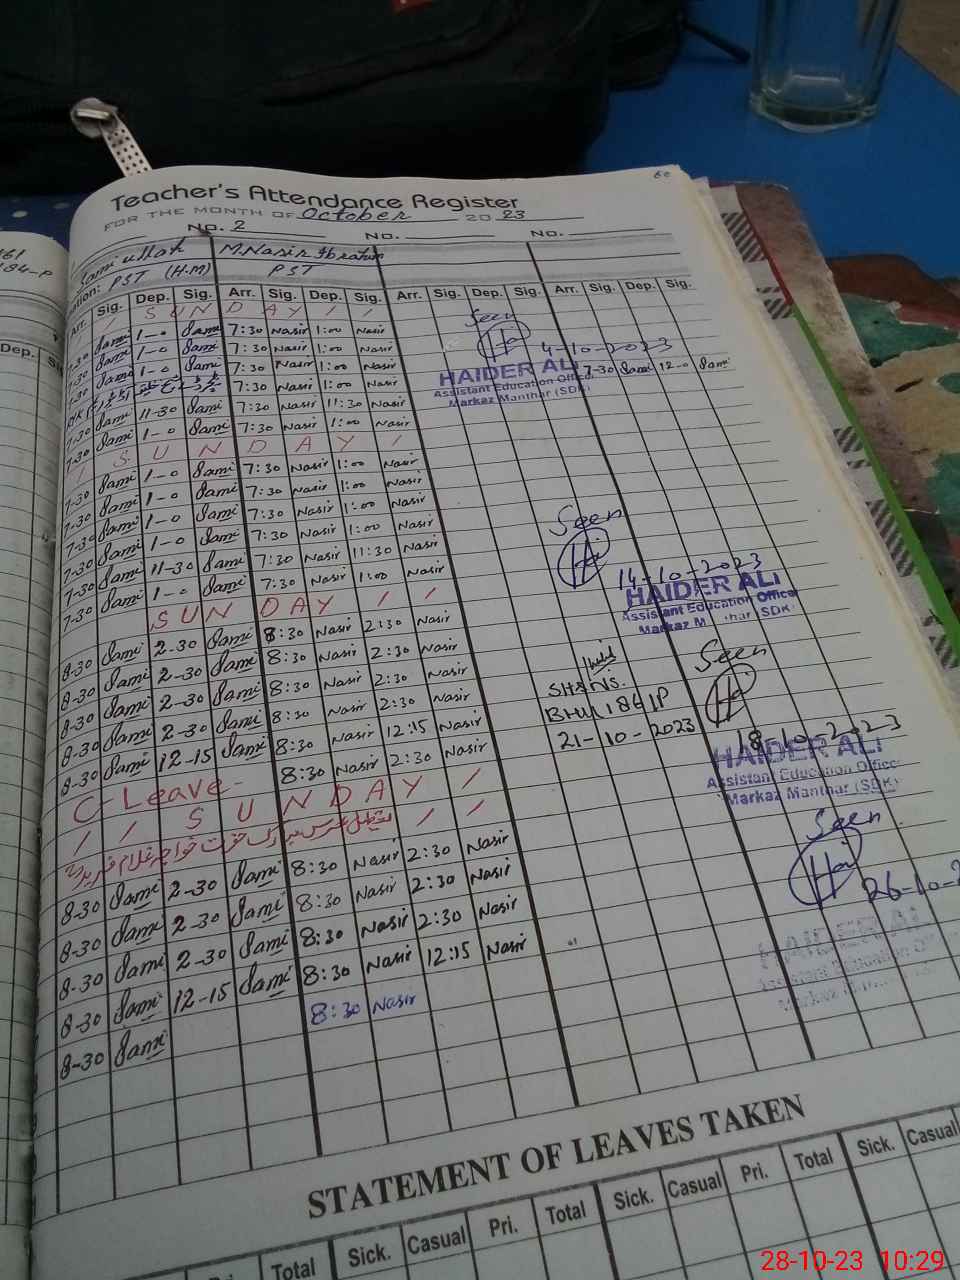 60
Teacher's Attendance Register
FOR THE MONTH OF October 2023
No. 2 No. No.
Sami ullah M. Nasir Ibrahim
PST (H.M) PST
Arr. Sig. Dep. Sig. Arr. Sig. Dep. Sig. Arr. Sig. Dep. Sig. Arr. Sig. Dep. Sig.
/ S U N D A Y / /
7-30 Sami 1-0 Sami 7:30 Nasir 1:00 Nasir
7-30 Sami 1-0 Sami 7:30 Nasir 1:00 Nasir
7-30 Sami 1-0 Sami 7:30 Nasir 1:00 Nasir 7-30 Sami 12-0 Sami
7:30 Nasir 1:00 Nasir
7-30 Sami 11-30 Sami 7:30 Nasir 11:30 Nasir
7-30 Sami 1-0 Sami 7:30 Nasir 1:00 Nasir
/ S U N D A Y /
7-30 Sami 1-0 Sami 7:30 Nasir 1:00 Nasir
7-30 Sami 1-0 Sami 7:30 Nasir 1:00 Nasir
7-30 Sami 1-0 Sami 7:30 Nasir 1:00 Nasir
7-30 Sami 1-0 Sami 7:30 Nasir 1:00 Nasir
7-30 Sami 11-30 Sami 7:30 Nasir 11:30 Nasir
7-30 Sami 1-0 Sami 7:30 Nasir 1:00 Nasir
S U N D A Y / /
8-30 Sami 2-30 Sami 8:30 Nasir 2:30 Nasir
8-30 Sami 2-30 Sami 8:30 Nasir 2:30 Nasir
8-30 Sami 2-30 Sami 8:30 Nasir 2:30 Nasir
8-30 Sami 2-30 Sami 8:30 Nasir 12:15 Nasir
8-30 Sami 12-15 Sami 8:30 Nasir 2:30 Nasir
C-Leave-
/ / S U N D A Y / /
تعطیل عرس مبارک حضرت خواجہ غلام فرید / /
8-30 Sami 2-30 Sami 8:30 Nasir 2:30 Nasir
8-30 Sami 2-30 Sami 8:30 Nasir 2:30 Nasir
8-30 Sami 2-30 Sami 8:30 Nasir 2:30 Nasir
8-30 Sami 12-15 Sami 8:30 Nasir 12:15 Nasir
8-30 Sami 8:30 Nasir
Seen
4-10-2023
HAIDER ALI
Assistant Education Office
Markaz Manthar (SDK)
Seen
14-10-2023
HAIDER ALI
Assistant Education Officer
Markaz Manthar (SDK)
21-10-2023
Seen
18-10-2023
HAIDER ALI
Assistant Education Office
Markaz Manthar (SDK)
Seen
26-10-2
HAIDER AL
Assistant Education Off
STATEMENT OF LEAVES TAKEN
Pri. Total Sick. Casual Pri. Total Sick. Casual Pri. Total Sick. Casual
28-10-23 10:29